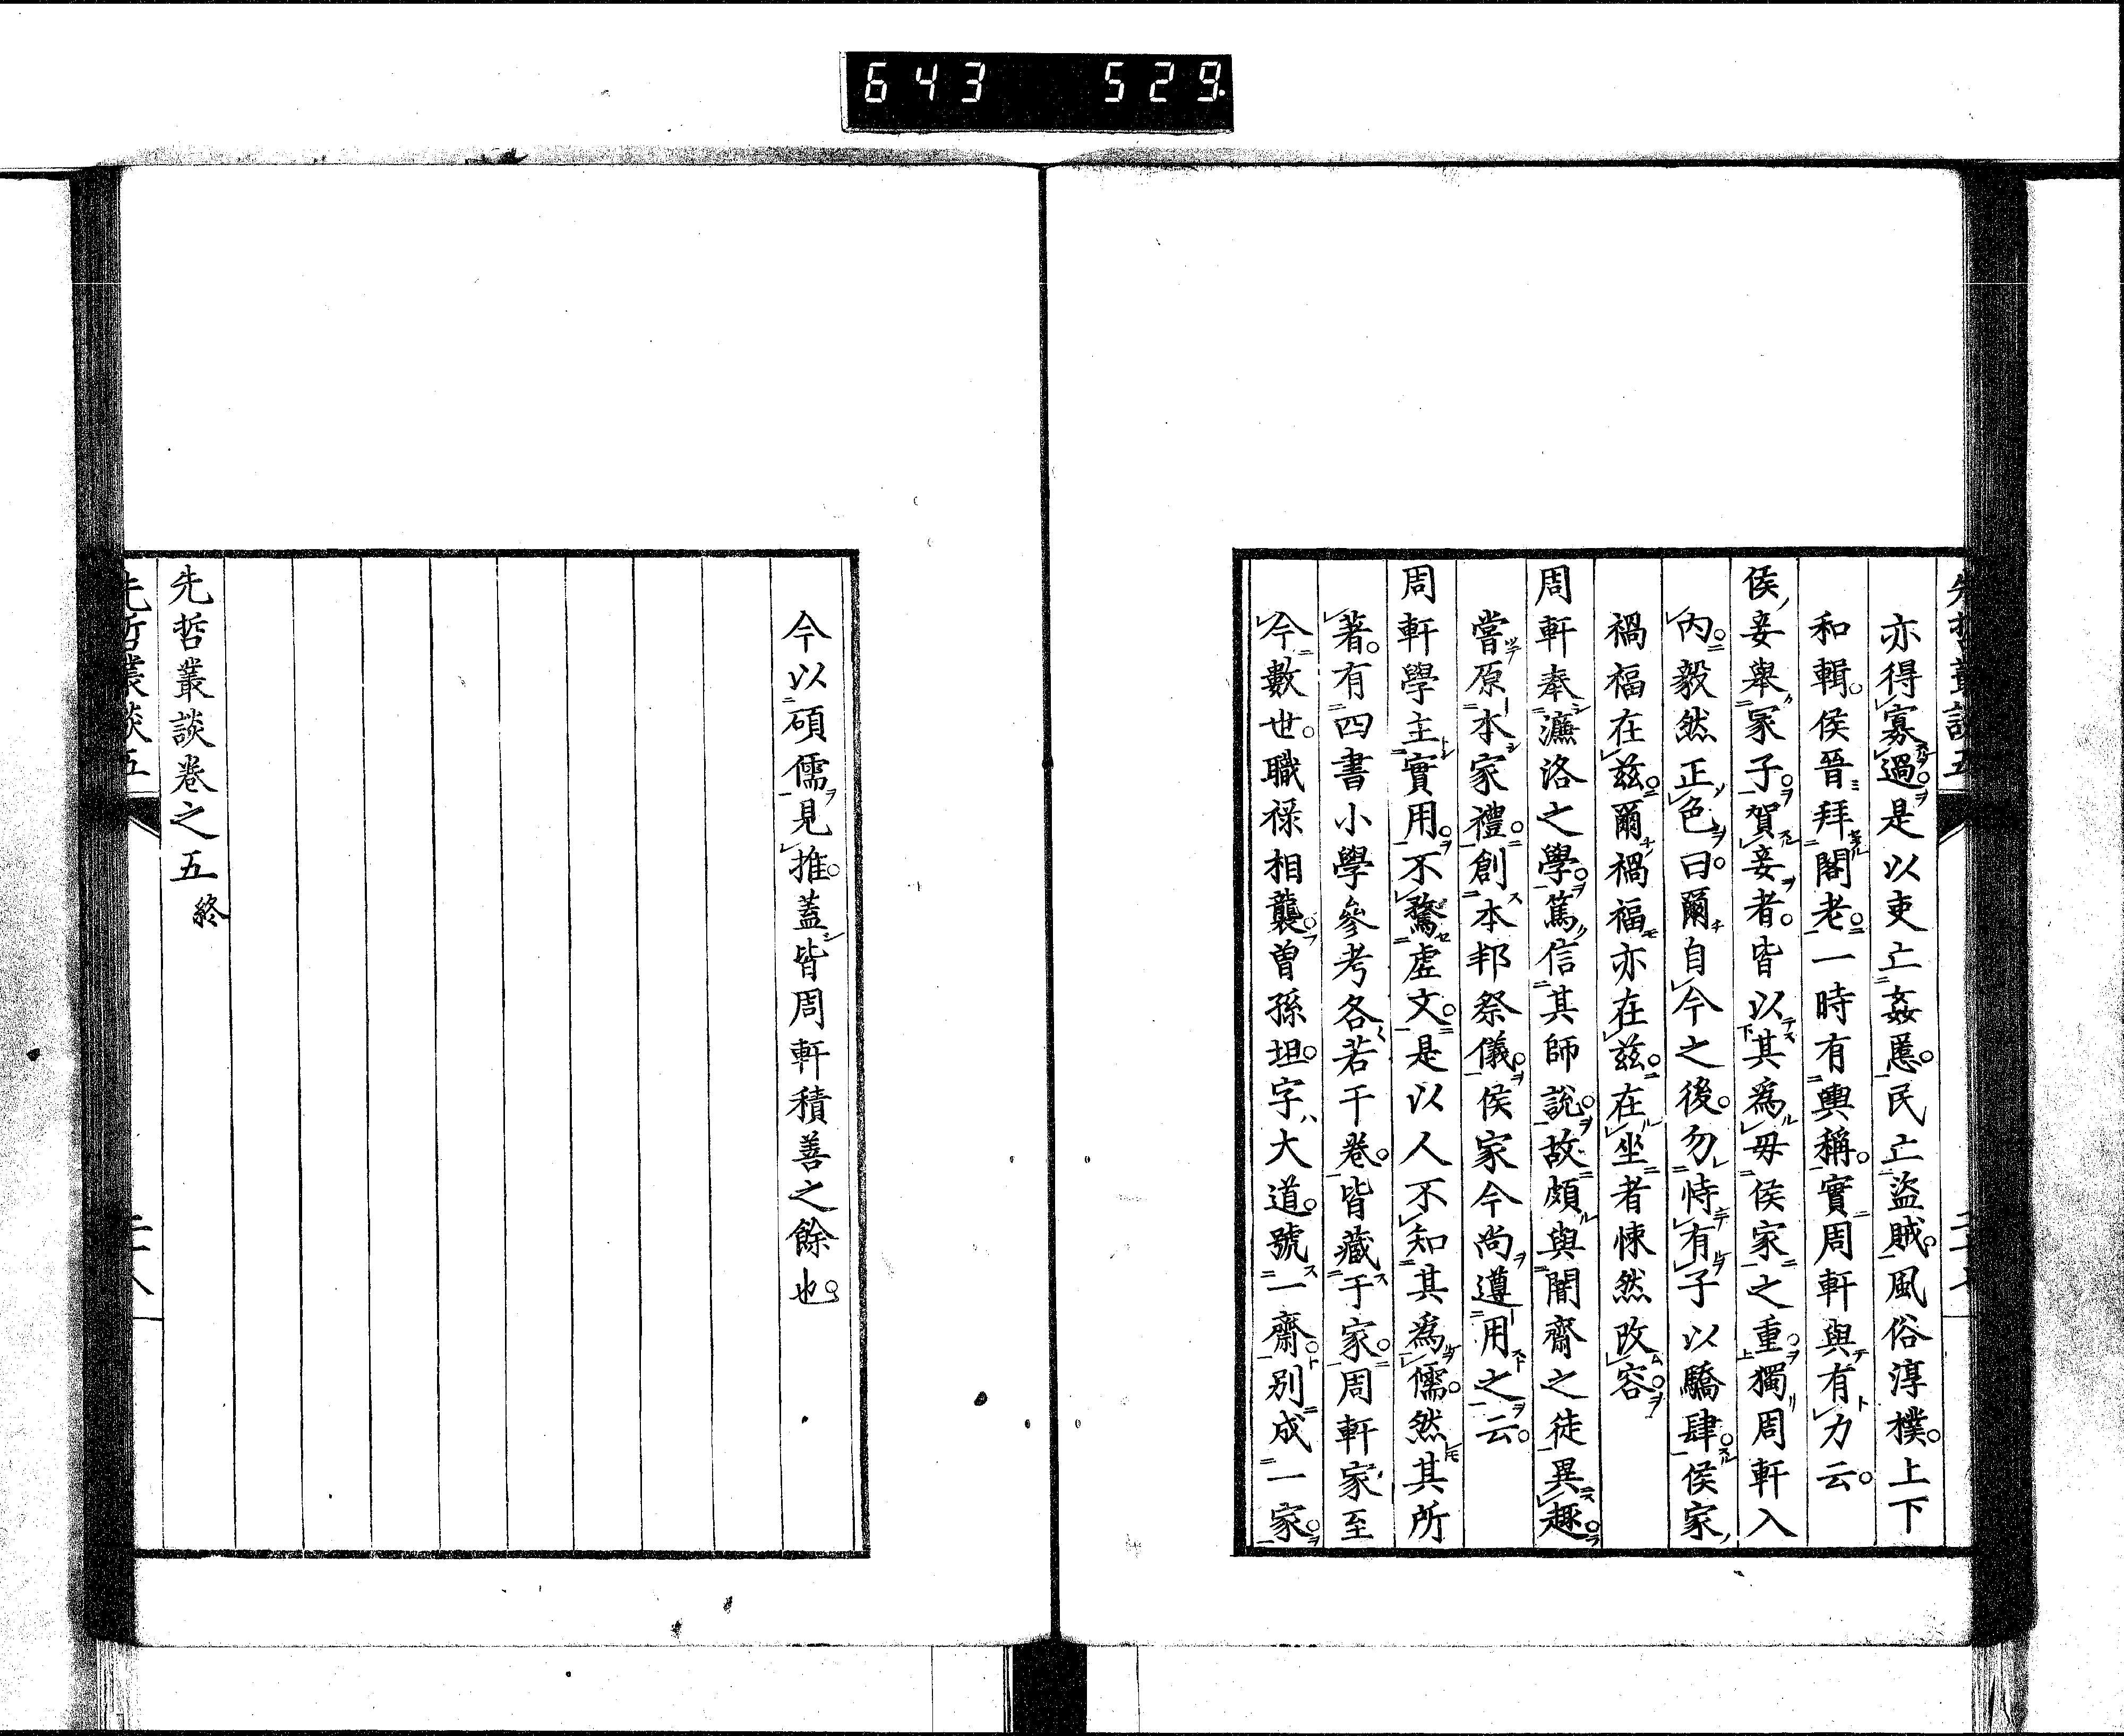 643 529.
亦得寡過是以吏亡姦慝民亡盜賊風俗淳樸上下
和輯侯晉拜閣老一時有輿稱實周軒與有力云
侯妾舉冢子賀妾者皆以其爲毋侯家之重獨周軒入
內毅然正色曰爾自今之後勿恃有子以驕肆侯家
禍福在茲爾禍福亦在茲在坐者悚然改容
周軒奉濂洛之學篤信其師說故頗與闇齋之徒異趣
嘗原本家禮創本邦祭儀侯家今尚遵用之云
周軒學主實用不騖虛文是以人不知其爲儒然其所
著有四書小學參考各若干卷皆藏于家周軒家至
今數世職祿相襲曾孫坦字大道號一齋別成一家
今以碩儒見推蓋皆周軒積善之餘也
先哲叢談卷之五終
先哲叢談五 二十八